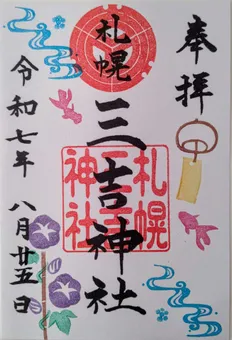 奉拝
札幌
三吉神社
令和七年
八月廿五日
札幌
三吉
神社